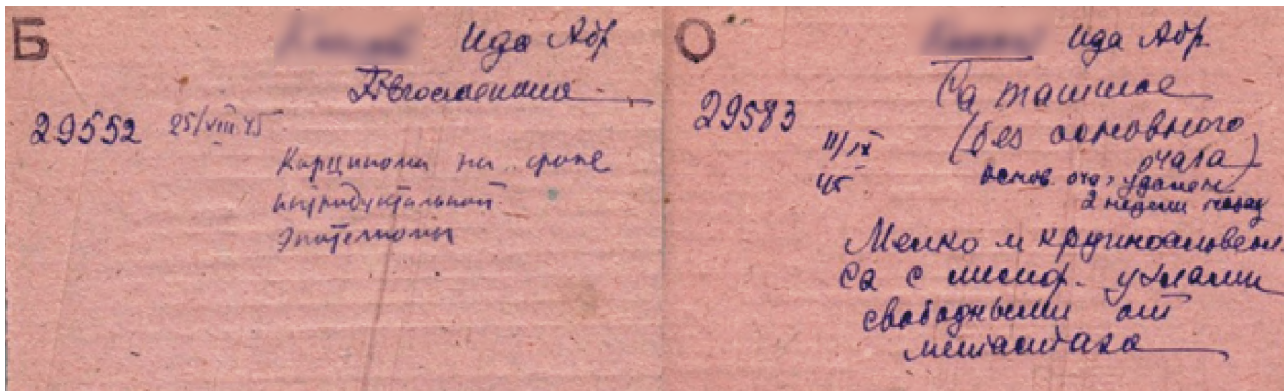 Б
Ида Абр
29552 25/VIII 45
Карцинома на фоне
интрадуктальной
Эпителиомы
О
Ида Абр.
29583
11/IX
45
Ca mammae
(без основного
очага)
основ. очаг удален
2 недели назад
Мелко и крупноальвеол.
Ca с лимф. узлами
свободными от
метастаза